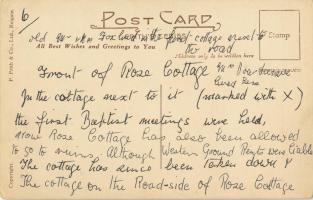 6/
POST CARD
old
Foxland
the first cottage next to
the road
All Best Wishes and Greetings to You
Address only to be written here
Stamp
Front of Rose Cottage
lived here
In the cottage next to it (marked with X)
the first Baptist meetings were held,
now Rose Cottage has also been allowed
to go to ruins, Although Western Ground Rents were liable
The cottage has since been taken down
The cottage on the Road-side of Rose Cottage
P. Frith & Co., Ltd., Reigate.
Copyright.